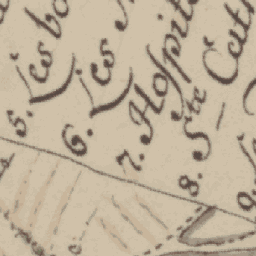 5. Les bo
6. Les
7. Hospit
8. Ste Cath
9.